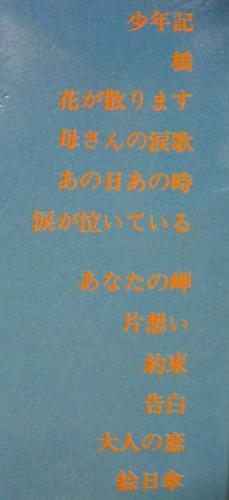 少年記
橋
花が散ります
母さんの涙歌
あの日あの時
涙が泣いている
あなたの岬
片想い
約束
告白
大人の恋
絵日傘